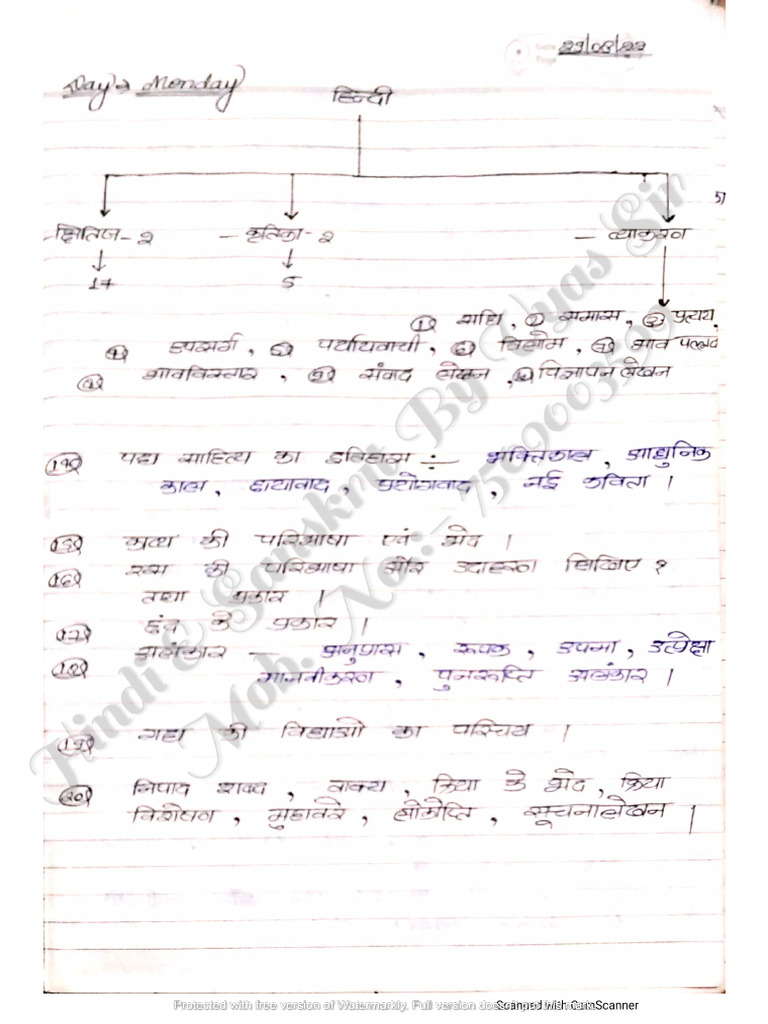 29/08/22
Day → Monday
हिन्दी
क्षितिज - 2 - कृतिका - 2 - व्याकरण
17 5
① संधि, ② समास, ③ प्रत्यय,
④ उपसर्ग, ⑤ पर्यायवाची, ⑥ विलोम, ⑦ भाव पल्लव
⑧ भावविस्तार, ⑨ संवाद लेखन, ⑩ विज्ञापन लेखन
पद्य साहित्य का इतिहास :- भक्तिकाल, आधुनिक
काल, छायावाद, प्रयोगवाद, नई कविता ।
काव्य की परिभाषा एवं भेद ।
(16) रस की परिभाषा और उदाहरण लिखिए ?
तथा प्रकार ।
(17) छंद के प्रकार ।
(18) अलंकार - अनुप्रास, रूपक, उपमा, उत्प्रेक्षा
मानवीकरण, पुनरूक्ति अलंकार ।
(19) गद्य की विधाओं का परिचय ।
(20) निपाद शब्द, वाक्य, क्रिया के भेद, क्रिया
विशेषण, मुहावरे, लोकोक्ति, सूचनालेखन |
Hindi & Sanskrit By Vyas Sir
Mob. No:-
Protected with free version of Watermarkly. Full version doesn't put this mark.
Scanned with CamScanner